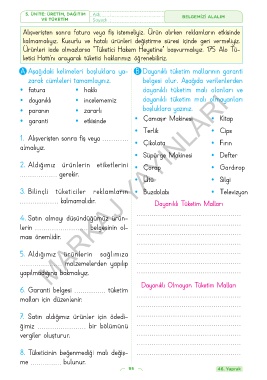 5. ÜNİTE: ÜRETİM, DAĞITIM
VE TÜKETİM
Adı:
Soyadı:
BİLGİMİZİ ALALIM
Alışverişten sonra fatura veya fiş istemeliyiz. Ürün alırken reklamların etkisinde
kalmamalıyız. Kusurlu ve hatalı ürünleri değiştirme süresi içinde geri vermeliyiz.
Ürünleri iade olmazlarsa "Tüketici Hakem Heyetine" başvurmalıyız. 175 Alo Tü-
ketici Hattı'nı arayarak tüketici haklarımızı öğrenebiliriz.
A Aşağıdaki kelimeleri boşluklara ya-
zarak cümleleri tamamlayınız.
• fatura • haklı
• dayanıklı • incelememiz
• paranın • zararlı
• garanti • etkisinde
1. Alışverişten sonra fiş veya ............
almalıyız.
2. Aldığımız ürünlerin etiketlerini
................ gerekir.
3. Bilinçli tüketiciler reklamların
................ kalmamalıdır.
4. Satın almayı düşündüğümüz ürün-
lerin ................ belgesinin ol-
ması önemlidir.
5. Aldığımız ürünlerin sağlımıza
................ malzemelerden yapılıp
yapılmadığına bakmalıyız.
6. Garanti belgesi ................ tüketim
malları için düzenlenir.
7. Satın aldığımız ürünler için ödedi-
ğimiz ................ bir bölümünü
vergiler oluşturur.
8. Tüketicinin beğenmediği malı değiş-
me ................ bulunur.
B Dayanıklı tüketim mallarının garanti
belgesi olur. Aşağıda verilenlerden
dayanıklı tüketim malı olanları ve
dayanıklı tüketim malı olmayanları
boşluklara yazınız.
• Çamaşır Makinesi • Kitap
• Terlik • Cips
• Çikolata • Fırın
• Süpürge Makinesi • Defter
• Çorap • Gardırop
• Ütü • Silgi
• Buzdolabı • Televizyon
Dayanıklı Tüketim Malları
Dayanıklı Olmayan Tüketim Malları
46. Yaprak